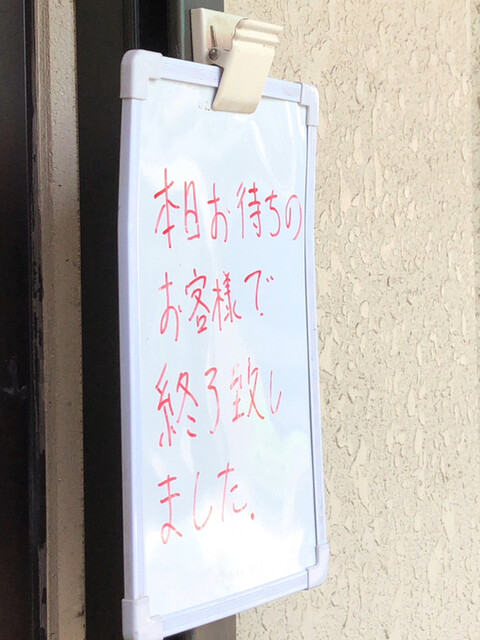 本日お待ちの
お客様で
終了致し
ました.